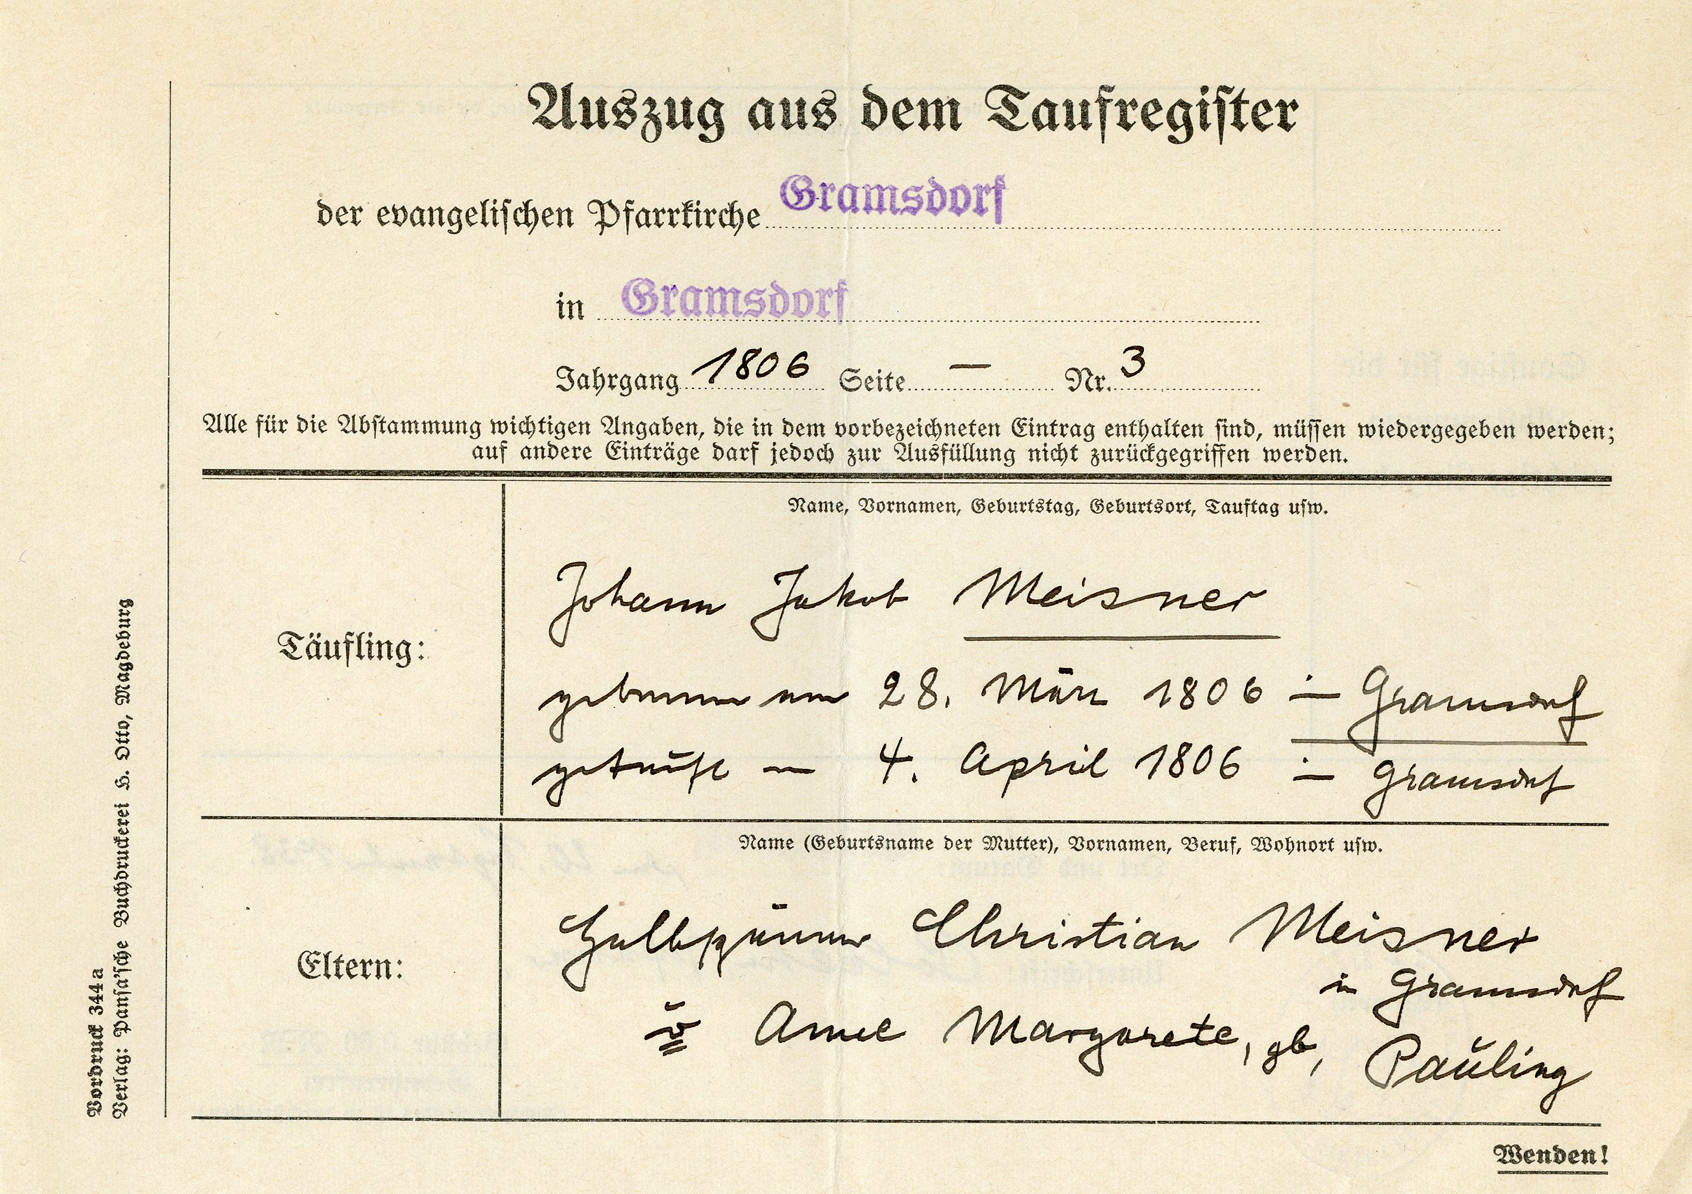 Auszug aus dem Taufregister
der evangelischen Pfarrkirche Gramsdorf
in Gramsdorf
Jahrgang 1806 Seite — Nr. 3
Alle für die Abstammung wichtigen Angaben, die in dem vorbezeichneten Eintrag enthalten sind, müssen wiedergegeben werden;
auf andere Einträge darf jedoch zur Ausfüllung nicht zurückgegriffen werden.
Name, Vornamen, Geburtstag, Geburtsort, Tauftag usw.
Täufling:
Johann Jakob Meisner
geboren am 28. März 1806 in Gramsdorf
getauft am 4. April 1806 in Gramsdorf
Name (Geburtsname der Mutter), Vornamen, Beruf, Wohnort usw.
Eltern:
Halbspänner Christian Meisner
in Gramsdorf
u Anne Margarete, gb, Pauling
Wenden!
Vordruck 344a
Verlag: Pansa'sche Buchdruckerei H. Otto, Magdeburg